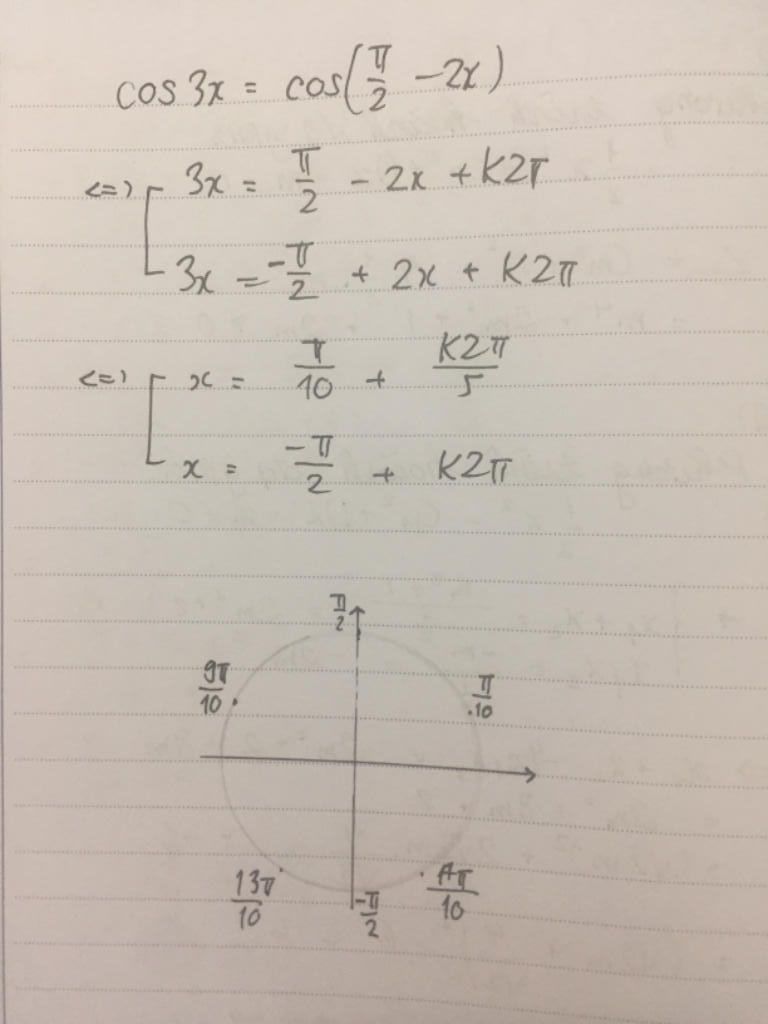 cos 3x = cos(π/2 - 2x)
<=> [ 3x = π/2 - 2x + K2π
3x = -π/2 + 2x + K2π
<=> [ x = π/10 + K2π/5
x = -π/2 + K2π
π/2
9π/10
π/10
13π/10
-π/2